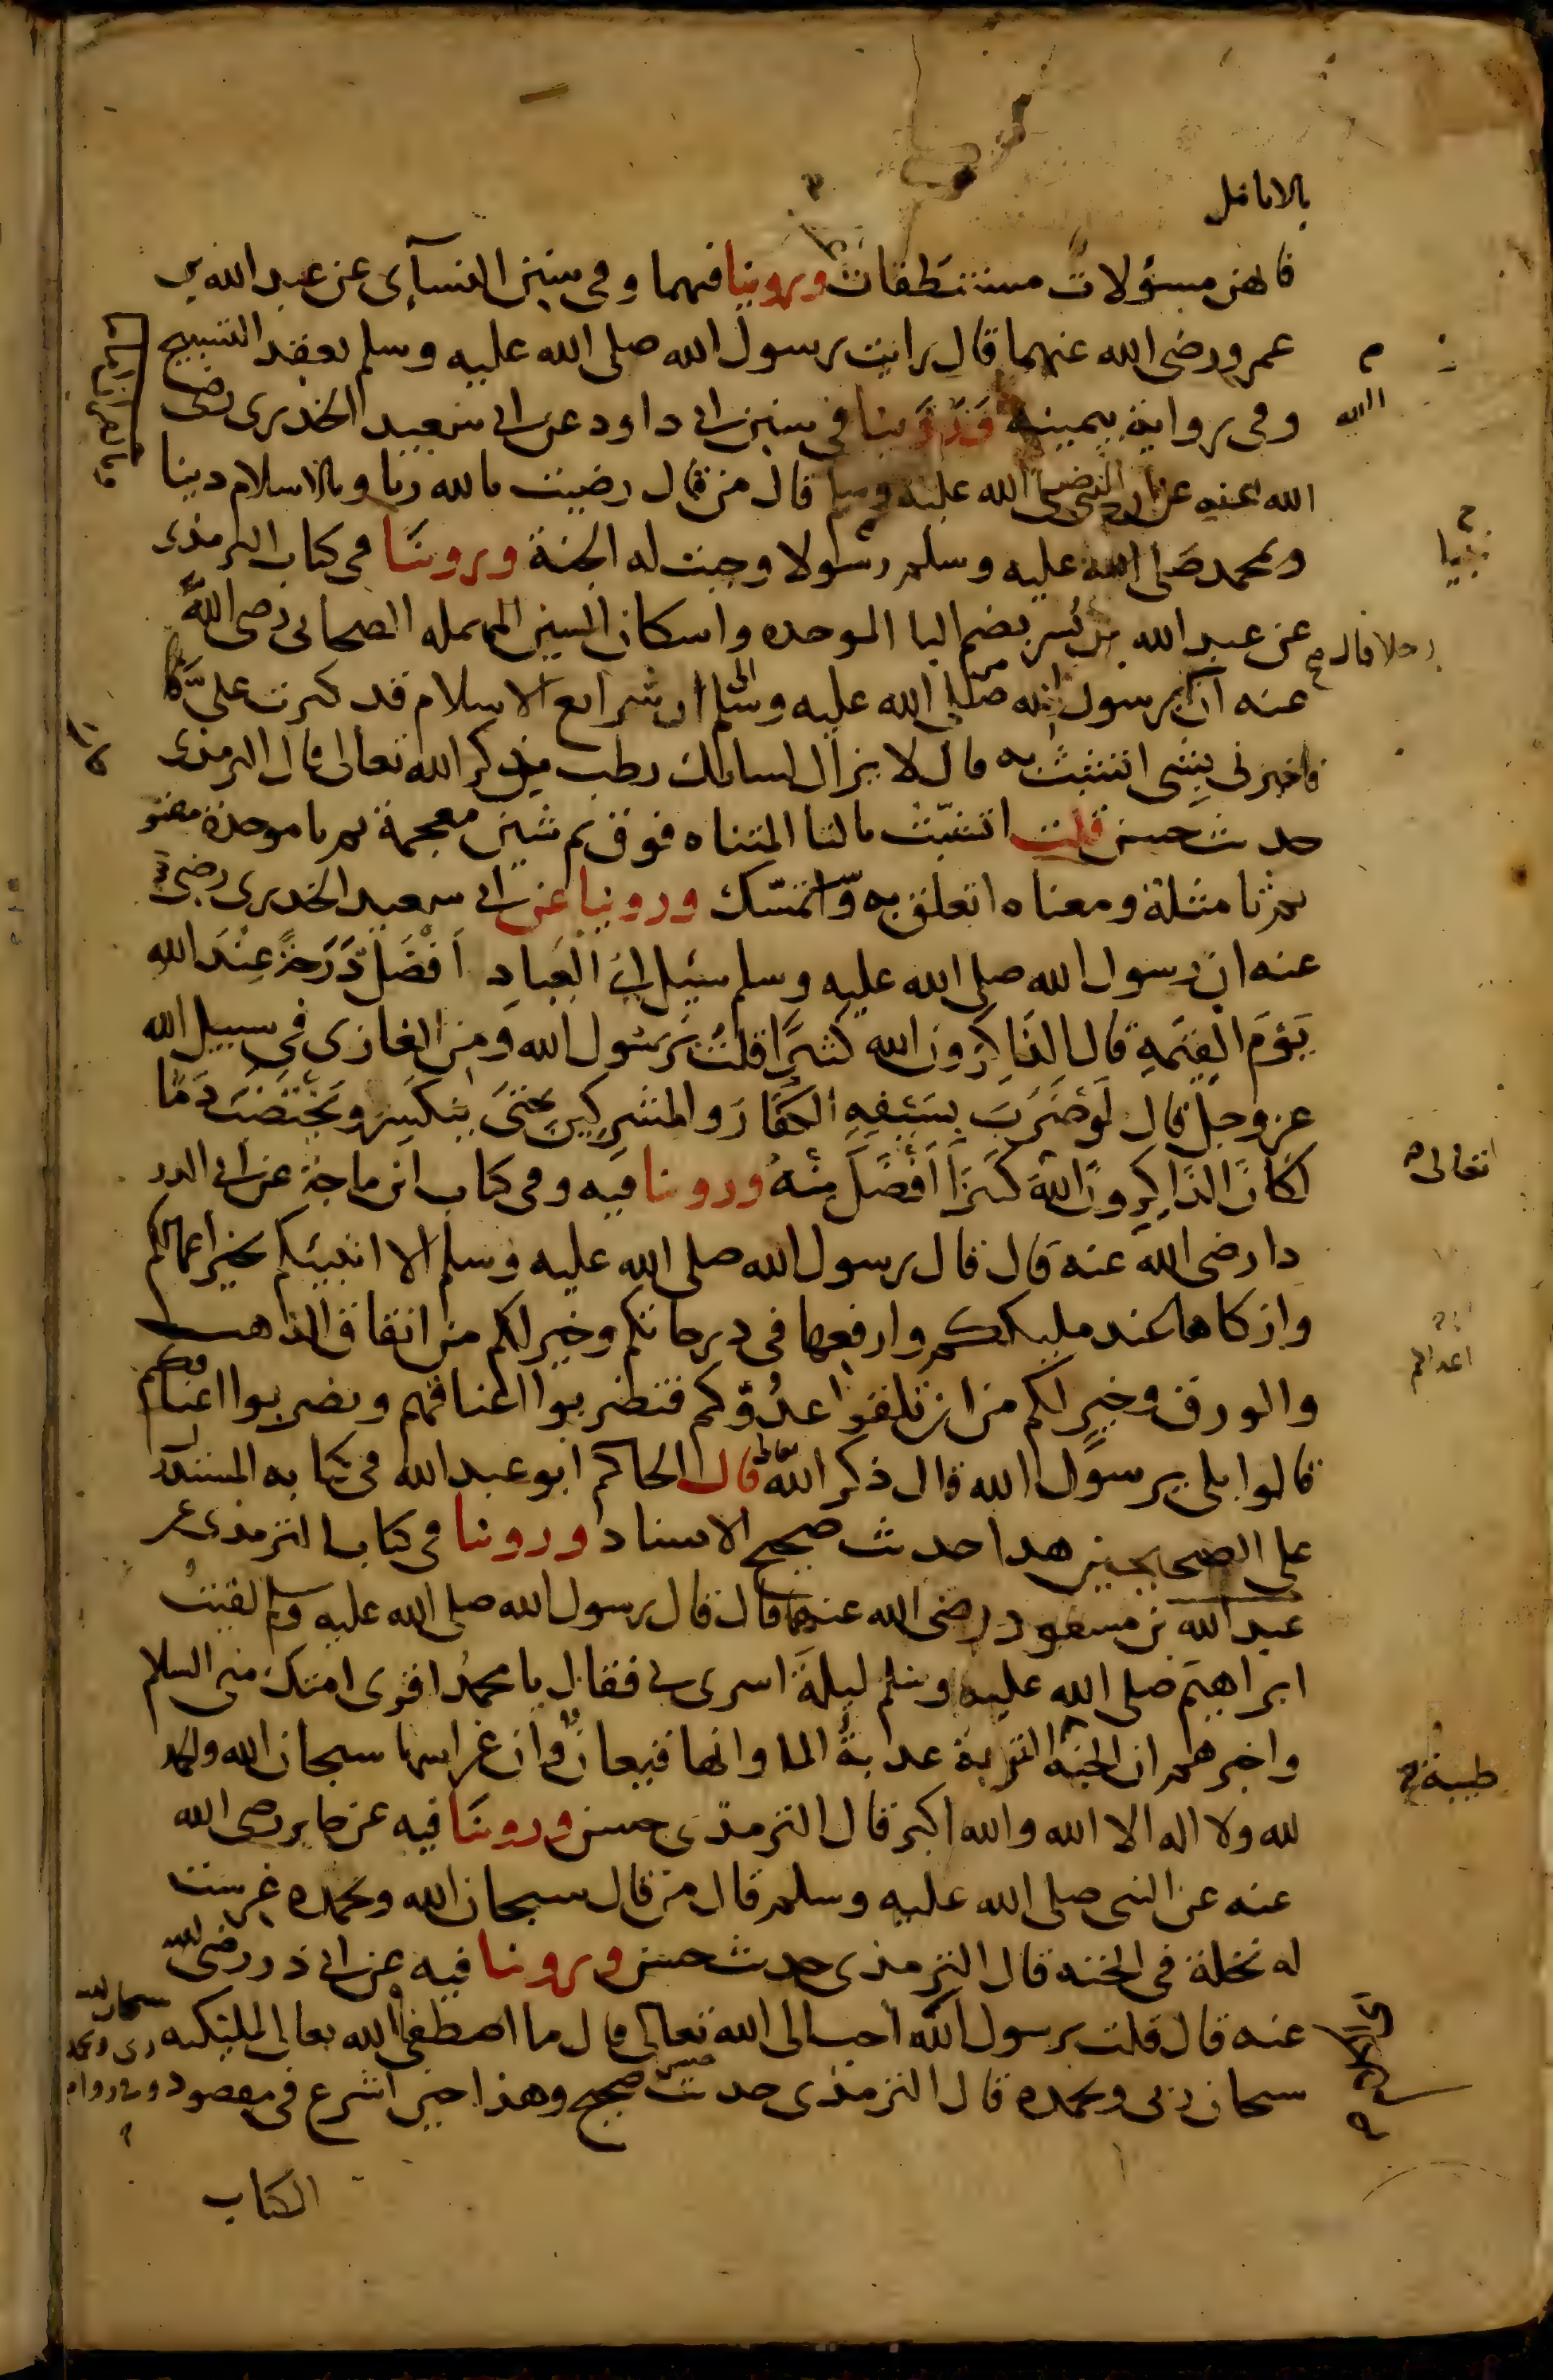 بالانامل
فانهن مسؤلات مستنطقات وروينا فيهما وفي سنن النسآي عن عبد الله بن
عمرو رضي الله عنهما قال رايت رسول الله صلى الله عليه وسلم يعقد التسبيح
وفي رواية بيمينه وروينا في سنن ابي داود عن ابي سعيد الخدري رضي
الله عنه عن النبي صلى الله عليه وسلم قال من قال رضيت بالله ربا وبالاسلام دينا
وبمحمد صلى الله عليه وسلم رسولا وجبت له الجنة وروينا في كتاب الترمذي
نبيا
عن عبد الله بن بُسر بضم البا الموحده واسكان السين المهمله الصحابي رضي الله
رجلا قال
عنه ان يرسول الله صلى الله عليه وسلم ان شرايع الاسلام قد كثرت عليَّ
فاخبرني بشي اتشبث به قال لا يزال لسانك رطب من ذكر الله تعالى قال الترمذي
حديث حسن قلت اتشبّث بالتا المثناه فوق ثم شين معجمة ثم با موحدة مفتو
ثم ثا مثلثة ومعناه اتعلق به واتمسّك وروينا عن ابي سعيد الخدري رضي الله
عنه ان رسول الله صلى الله عليه وسلم سئل اي العِبادِ افضل درجةً عِندَ الله
يَومَ القِيمَةِ قال الذَاكِرُون الله كثيرًا قلتُ يرسُول الله ومن الغازي في سبيل الله
عز وجل قال لَو ضَرَبَ بسَيفِهِ الكفّارَ والمشرِكِين حتىَ ينكَسِرَ ويَختَضبَ دَمًا
لكانَ الذَاكِرونَ اللهَ كثيرًا اَفضَلَ مِنهُ وروينا فيه وفي كتاب ابن ماجة عن ابي الدر
تعالى
دا رضي الله عنه قال قال رسول الله صلى الله عليه وسلم الا انبيئكم بخير اعمالكم
وازكاها عند مليككم وارفعها في درجاتكم وخير لكم من انفاق الذهب
والورق وخير لكم من ان تلقوا عدُوّكم فتضربوا اعناقهم ويضربوا اعناقكم
قالوا بلى يرسول الله قال ذكر الله تعالى قال الحاكم ابو عبد الله في كتابه المستدر
على الصحيحين هذا حديث صحيح الاسناد وروينا في كتاب الترمذي عن
عبد الله بن مسعود رضي الله عنهما قال قال رسول الله صلى الله عليه وسلم لقيتُ
ابراهيم صلى الله عليه وسلم ليلةَ اسري بي فقال يا محمدُ اقري امتك مني السلام
واخبرهم ان الجنة التربة عذبةُ الما وانها قيعانٌ وان غراسها سبحان الله والحمد
طيبة
لله ولا اله الا الله والله اكبر قال الترمذي حسن وروينا فيه عن جابر رضي الله
عنه عن النبي صلى الله عليه وسلم قال من قال سبحان الله وبحمده غرست
له نخلة في الجنه قال الترمذي حديث حسن وروينا فيه عن ابي ذر رضي الله
عنه قال قلت يرسول الله احب الى الله تعالى قال ما اصطفى الله تعالى لمليكته
سبحان ربي وبحمده قال الترمذي حديث حسن صحيح وهذا حين اشرع في مقصود
الكتاب